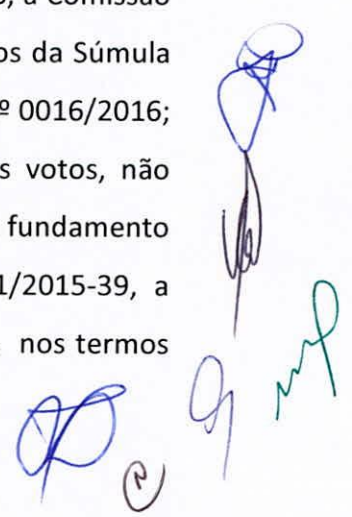 s, a Comissão
os da Súmula
º 0016/2016;
s votos, não
fundamento
1/2015-39, a
nos termos